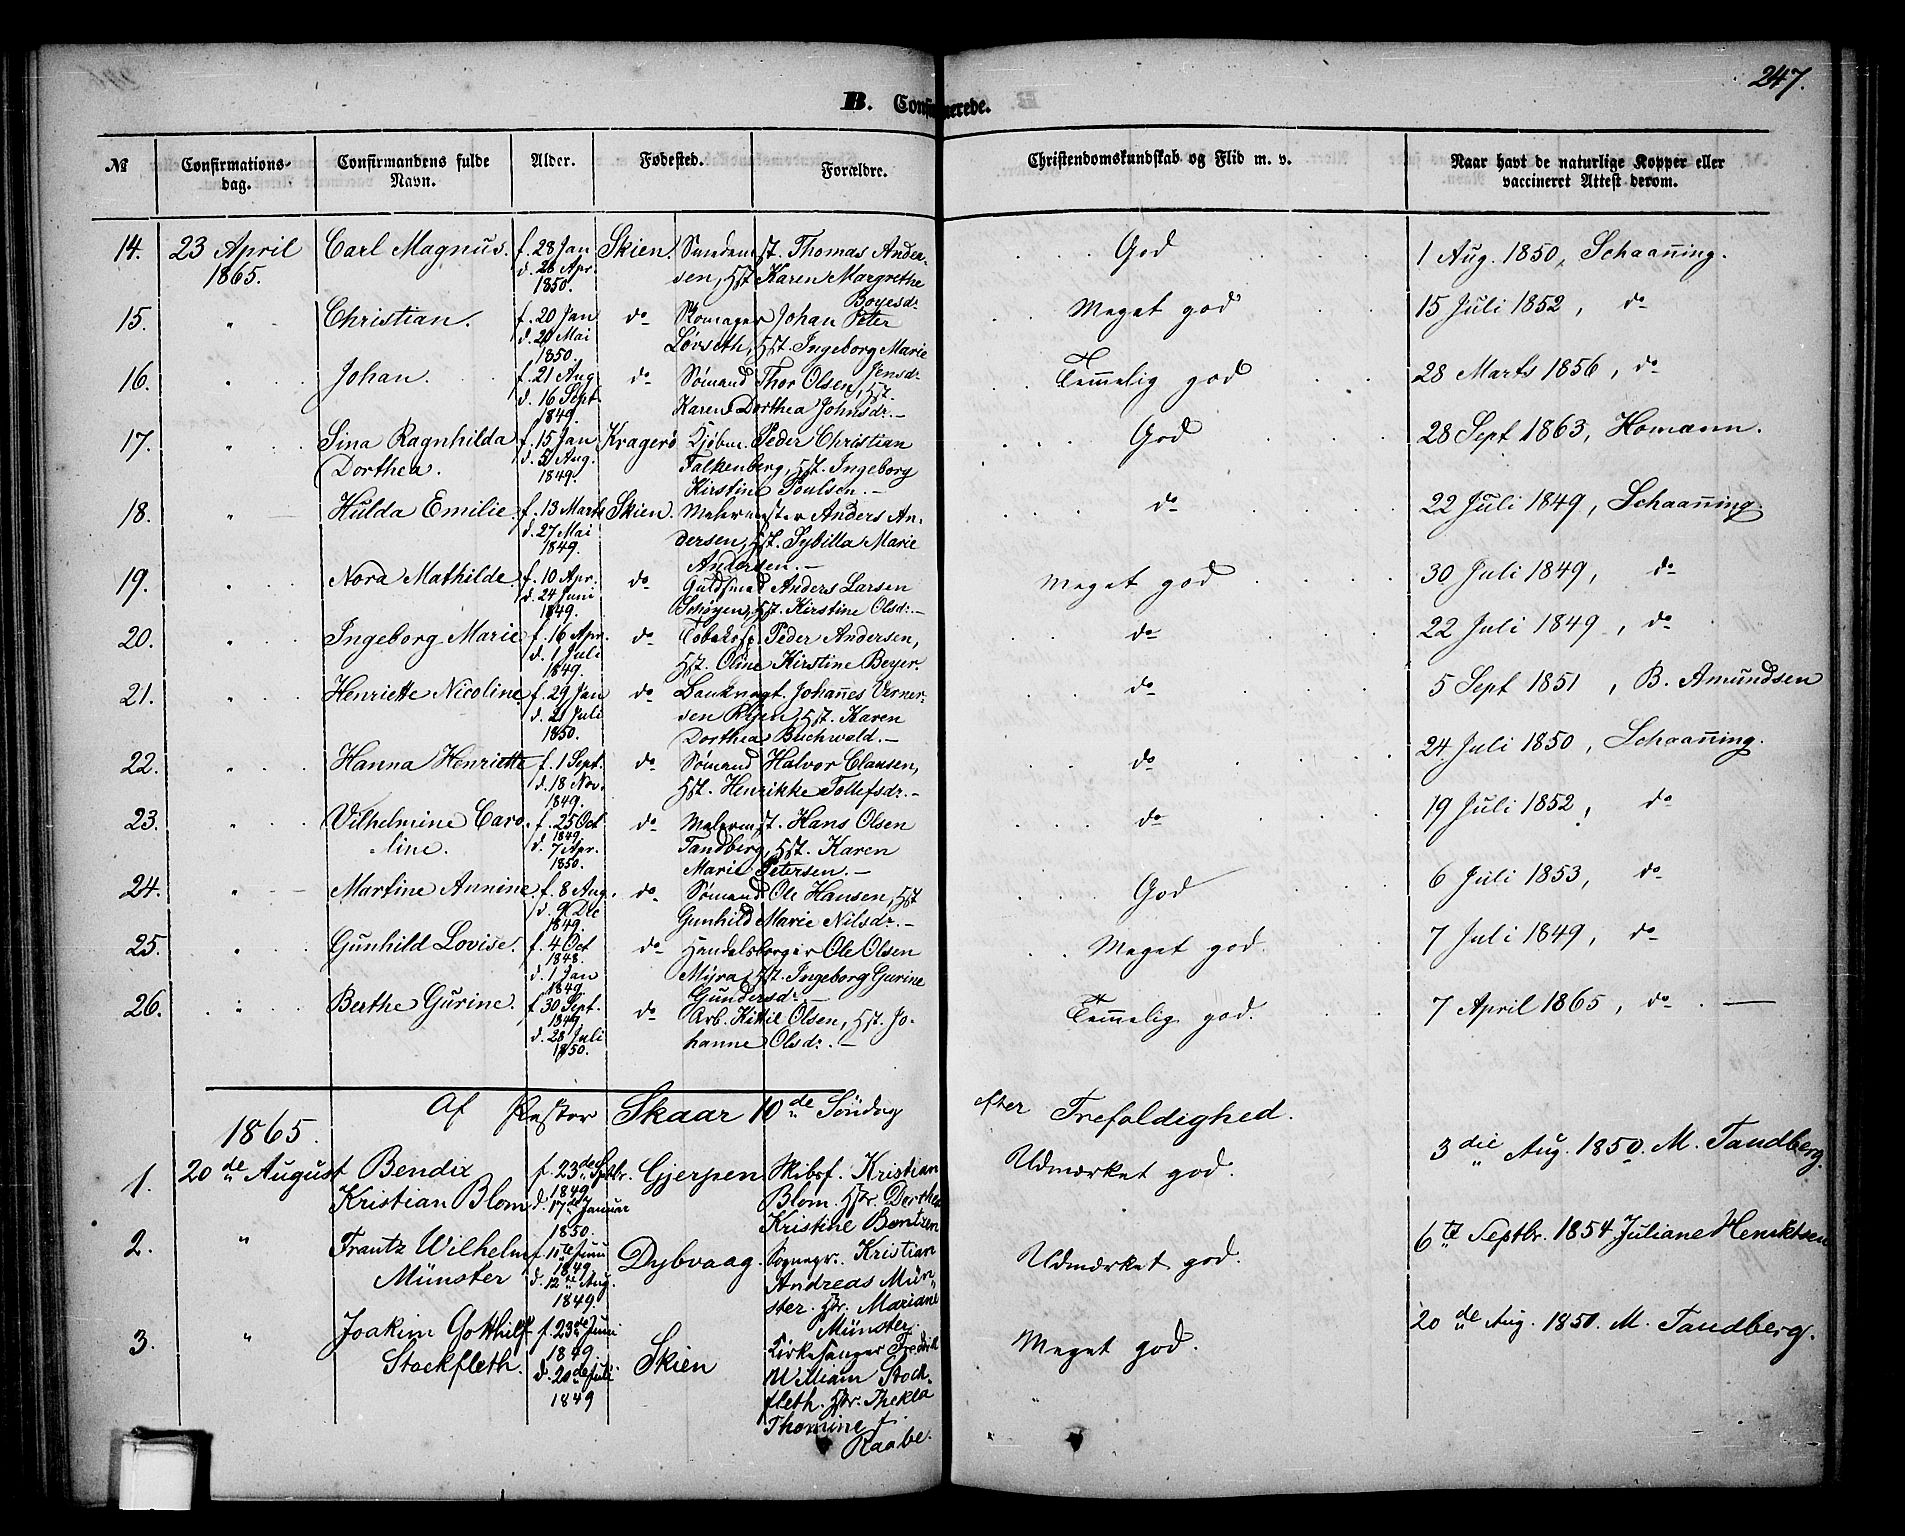 247.
B. Confirmerede.
No Confirmationsdag. Confirmandens fulde Navn. Alder. Fødested. Forældre. Christendomskundskab og Flid m. v. Naar havt de naturlige Kopper eller vaccineret Attest derom.
14. 23 April 1865. Carl Magnus. f. 28 Jan d. 28 Apr. 1850. Skien. Smedemst. Thomas Andersen, Hst. Karen Margrethe Boyesdr. God 1 Aug. 1850, Schaanning.
15. " Christian. f. 20 Jan d. 20 Mai 1850. do Skomager Johan Peter Løvseth, Hst. Ingeborg Marie Jensdr. Meget god 15 Juli 1852, do
16. " Johan. f. 21 Aug d. 16 Sept. 1849. do Sømand Thor Olsen, Hst. Karen Dorthea Johnsdr. – Temmelig god 28 Marts 1856, do
17. " Sina Ragnhilda Dorthea. f. 15 Jan d. 5 Aug. 1849. Kragerø Kjøbm. Peder Christian Falkenberg, Hst. Ingeborg Kirstine Poulsen. – God 28 Sept 1863, Homann.
18. " Hulda Emilie. f. 13 Marts d. 27 Mai 1849. Skien. Malermester Anders Andersen, Hst. Sybilla Marie Andersen. – do 22 Juli 1849, Schaanning
19. " Nora Mathilde. f. 10 Apr. d. 24 Juni 1849. do Guldsmed Anders Larsen Schøyen, Hst. Kirstine Olsdr. – Meget god 30 Juli 1849, do
20. " Ingeborg Marie f. 16 Apr. d. 1 Juli 1849. do Peder Andersen, Hst. Oline Kirstine Beyer. do 22 Juli 1849, do
21. " Henriette Nicoline f. 29 Jan d. 21 Juli 1850. do Bankvagt. Johannes Vernersen Hst. Karen Dorthea Buchwald. – do 5 Sept 1851, B. Amundsen
22. " Hanna Henriette f. 1 Sept. d. 18 Nov. 1849. do Sømand Halvor Clausen, Hst. Henrikke Tollefsdr. – do 24 Juli 1850, Schaanning.
23. " Vilhelmine Caroline. f. 25 Oct 1849. d. 7 Apr. 1850. do Malermst. Hans Olsen Tandberg, Hst. Karen Marie Petersen. – do 19 Juli 1852, do
24. " Martine Annine. f. 8 Aug. d. 9 Dec 1849. do Sømand Ole Hansen, Hst Gunhild Marie Nilsdr. – God 6 Juli 1853, do
25. " Gunhild Lovise. f. 4 Oct 1848. d. 1 Jan 1849. do Handelsborger Ole Olsen Myra, Hst. Ingeborg Gurine Gundersdr. – Meget god. 7 Juli 1849, do
26. " Berthe Gurine. f. 30 Sept. 1849 d. 28 Juli 1850. do Arb. Kittil Olsen, Hst. Johanne Olsdr. – Temmelig god. 7 April 1865, do –
1865. Af Pastor Skaar 10de Søndag efter Trefoldighed.
1. 20de August Bendix Kristian Blom f. 23de Septbr. 1849 d. 17de Januar 1850. Gjerpen Skibsf. Kristian Blom. Hstr. Dorthea Kristine Bentzen Udmærket god. 3die Aug. 1850. M. Tandberg.
2. " Frantz Wilhelm Münster f. 11te Juni 1849. d. 12te Aug. 1849. Dybvaag. Sognepr. Kristian Andreas Münster. Hstr. Mariane Münster. Udmærket god. 6te Septbr. 1854 Juliane Henriktsen
3. " Joakim Gotthilf Stockfleth. f. 23de Juni 1849. d. 20de Juli 1849 Skien Kirkesanger Fredrik William Stockfleth. Hstr. Thekla Thomine f. Raabe. Meget god. 20de Aug. 1850. M. Tandberg.